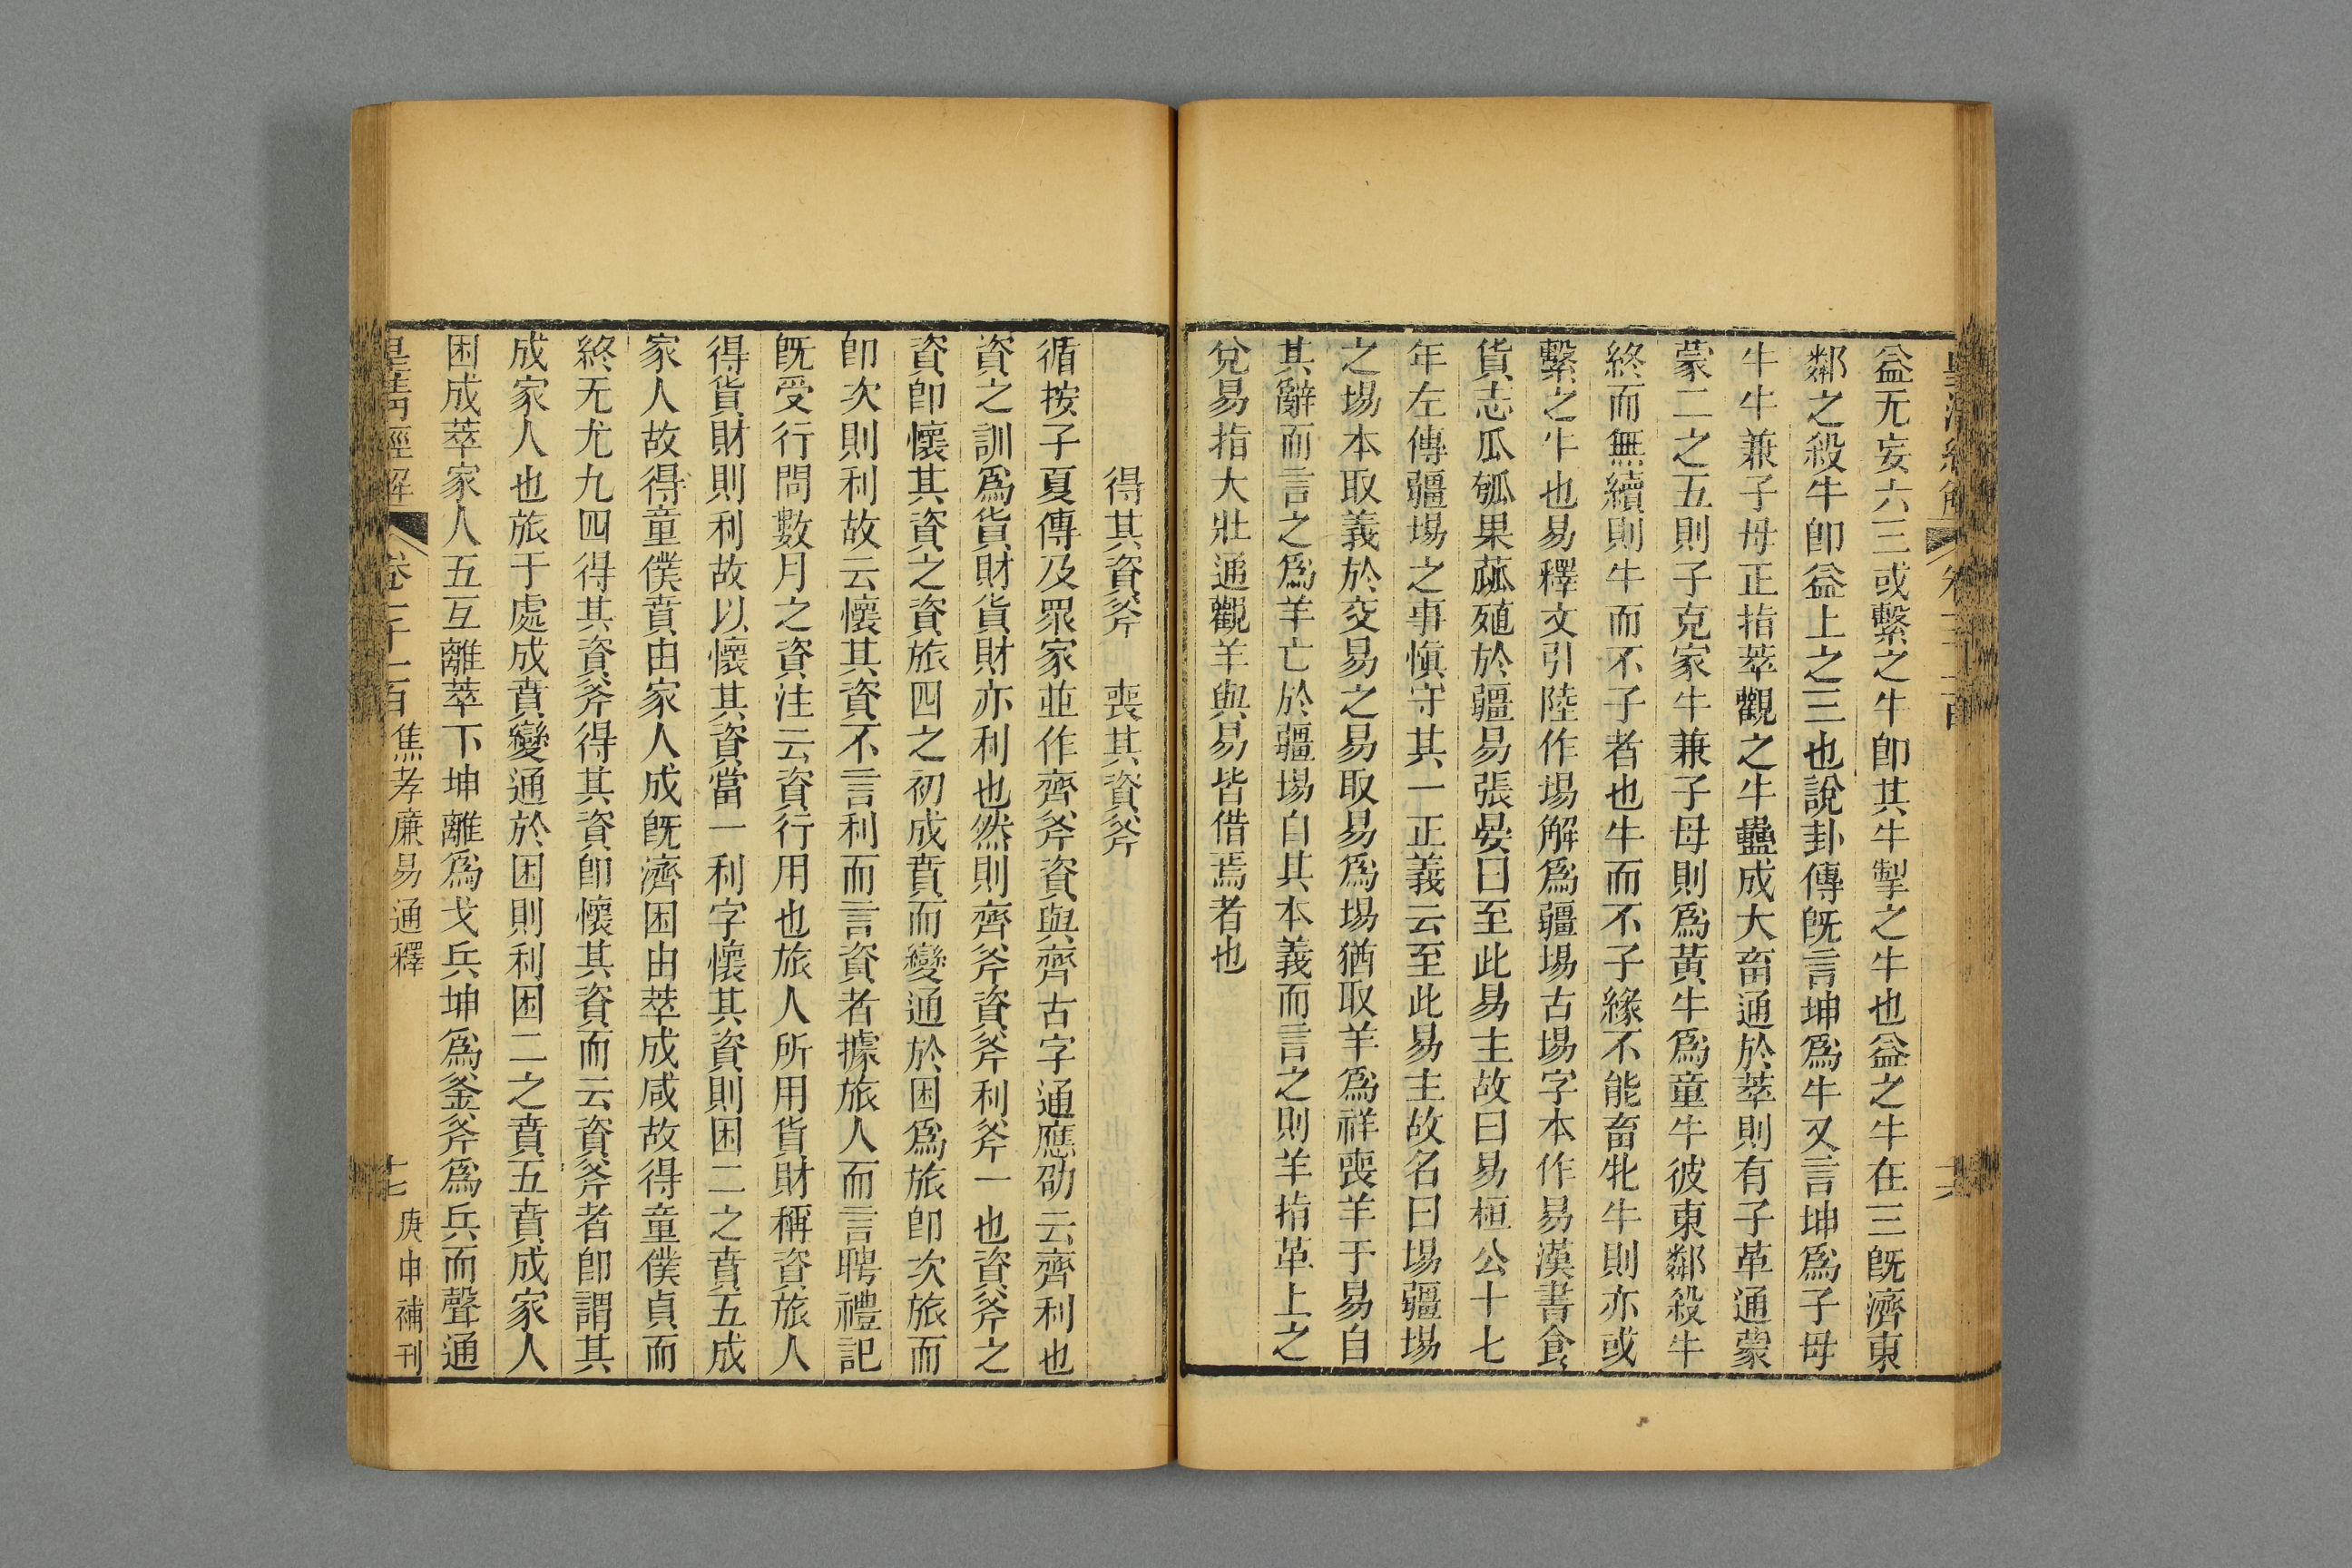 益无妄六三或繫之牛即其牛掣之牛也益之牛在三既濟東
鄰之殺牛即益上之三也說卦傳既言坤爲牛又言坤爲子母
牛牛兼子母正指萃觀之牛蠱成大畜通於萃則有子革通蒙
蒙二之五則子克家牛兼子母則爲黃牛爲童牛彼東鄰殺牛
終而無續則牛而不子者也牛而不子緣不能畜牝牛則亦或
繫之牛也易釋文引陸作埸解爲疆埸古埸字本作易漢書食
貨志瓜瓠果蓏殖於疆易張晏曰至此易主故曰易桓公十七
年左傳疆埸之事愼守其一正義云至此易主故名曰埸疆埸
之埸本取義於交易之易取易爲埸猶取羊爲祥喪羊于易自
其辭而言之爲羊亡於疆埸自其本義而言之則羊指革上之
兌易指大壯通觀羊與易皆借焉者也
得其資斧　喪其資斧
循按子夏傳及眾家並作齊斧資與齊古字通應劭云齊利也
資之訓爲貨財貨財亦利也然則齊斧資斧利斧一也資斧之
資即懷其資之資旅四之初成賁而變通於困爲旅即次旅而
即次則利故云懷其資不言利而言資者據旅人而言聘禮記
既受行問數月之資注云資行用也旅人所用貨財稱資旅人
得貨財則利故以懷其資當一利字懷其資則困二之賁五成
家人故得童僕賁由家人成既濟困由萃成咸故得童僕貞而
終无尤九四得其資斧得其資即懷其資而云資斧者即謂其
成家人也旅于處成賁變通於困則利困二之賁五賁成家人
困成萃家人五互離萃下坤離爲戈兵坤爲釜斧爲兵而聲通
皇清經解　卷一千一百　焦孝廉易通釋　十七　庚申補刊